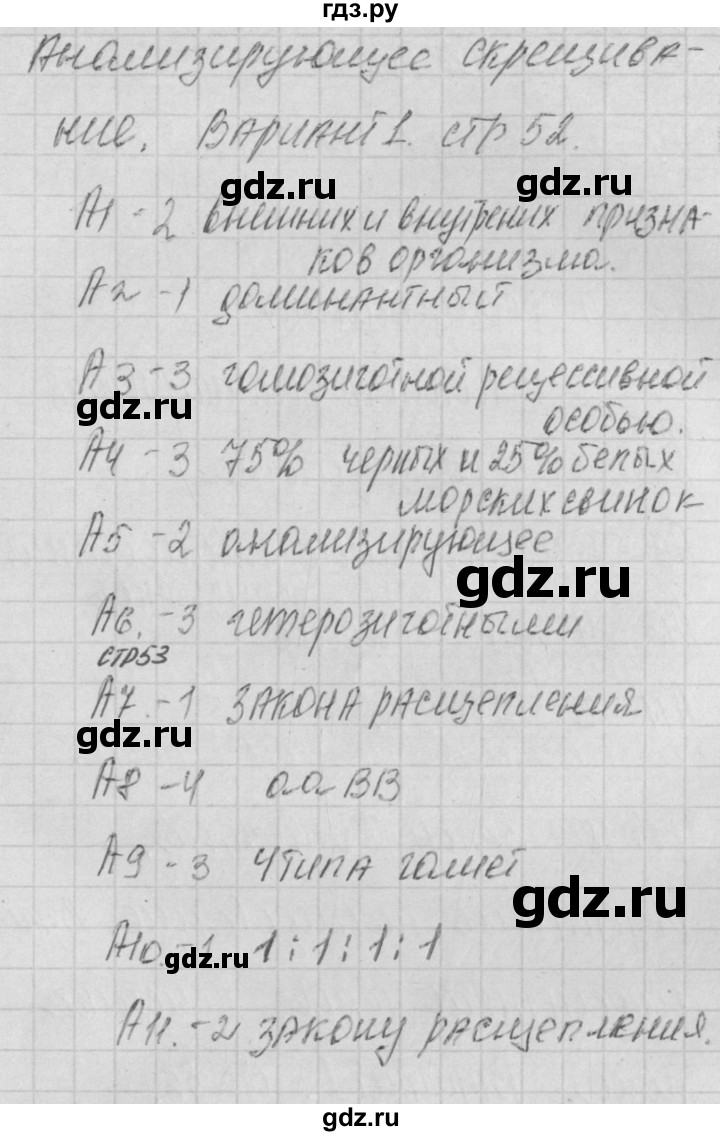 гдз.ру
Анализирующее скрещива-
ние. Вариант 1. стр 52.
gdz.ru gdz.ru
А1 - 2 внешних и внутрених призна-
ков организма.
А2 - 1 доминантный
А3 - 3 гомозиготной рецессивной
gdz.ru
особью.
А4 - 3 75% черных и 25% белых
морских свинок
А5 - 2 анализирующее
gdz.ru
А6. - 3 гетерозиготными
стр53
А7. - 1 закона расщепления
gdz.ru
А8 - 4 ааВВ
А9 - 3 4 типа гамет
gdz.ru
А10. - 1 1 : 1 : 1 : 1
gdz.ru
А11. - 2 закону расщепления.
gdz.ru